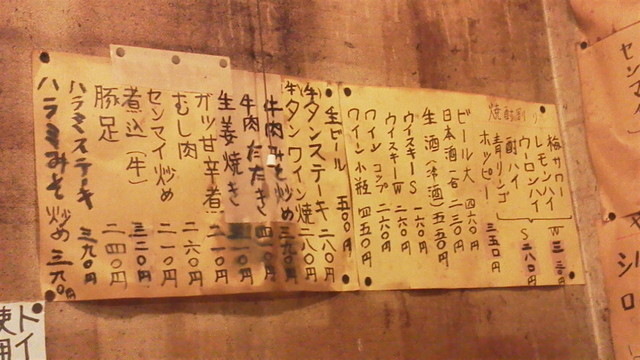 焼酎割り
梅サワー
レモンハイ
ウーロンハイ
酎ハイ
青リンゴ
W 三二〇円
S 二八〇円
ホッピー 三五〇円
ビール大 四六〇円
日本酒一合 二三〇円
生酒(冷酒)五五〇円
ウイスキーS 一六〇円
ウイスキーW 二六〇円
ワインコップ 二六〇円
ワイン小瓶 四五〇円
生ビール 五〇〇円
(牛)タンステーキ 二八〇円
(牛)タンワイン焼 二八〇円
牛肉みそ炒め 三九〇円
牛肉たたき
生姜焼き
ガツ甘辛煮 二一〇円
むし肉 二六〇円
センマイ炒め 二一〇円
煮込(牛) 三二〇円
豚足 二四〇円
ハラミステーキ 三九〇円
ハラミみそ炒め 三九〇円
トイ
使用
センマ
シロ